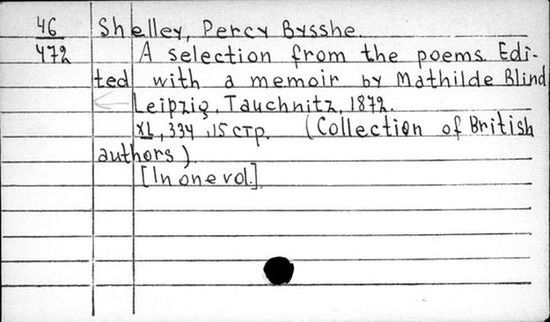 46 Shelley, Percy Bysshe.
472 A selection from the poems. Edi-
ted with a memoir by Mathilde Blind
Leipzig, Tauchnitz, 1872.
XL, 334, 15 стр. (Collection of British
authors)
[In one vol.]